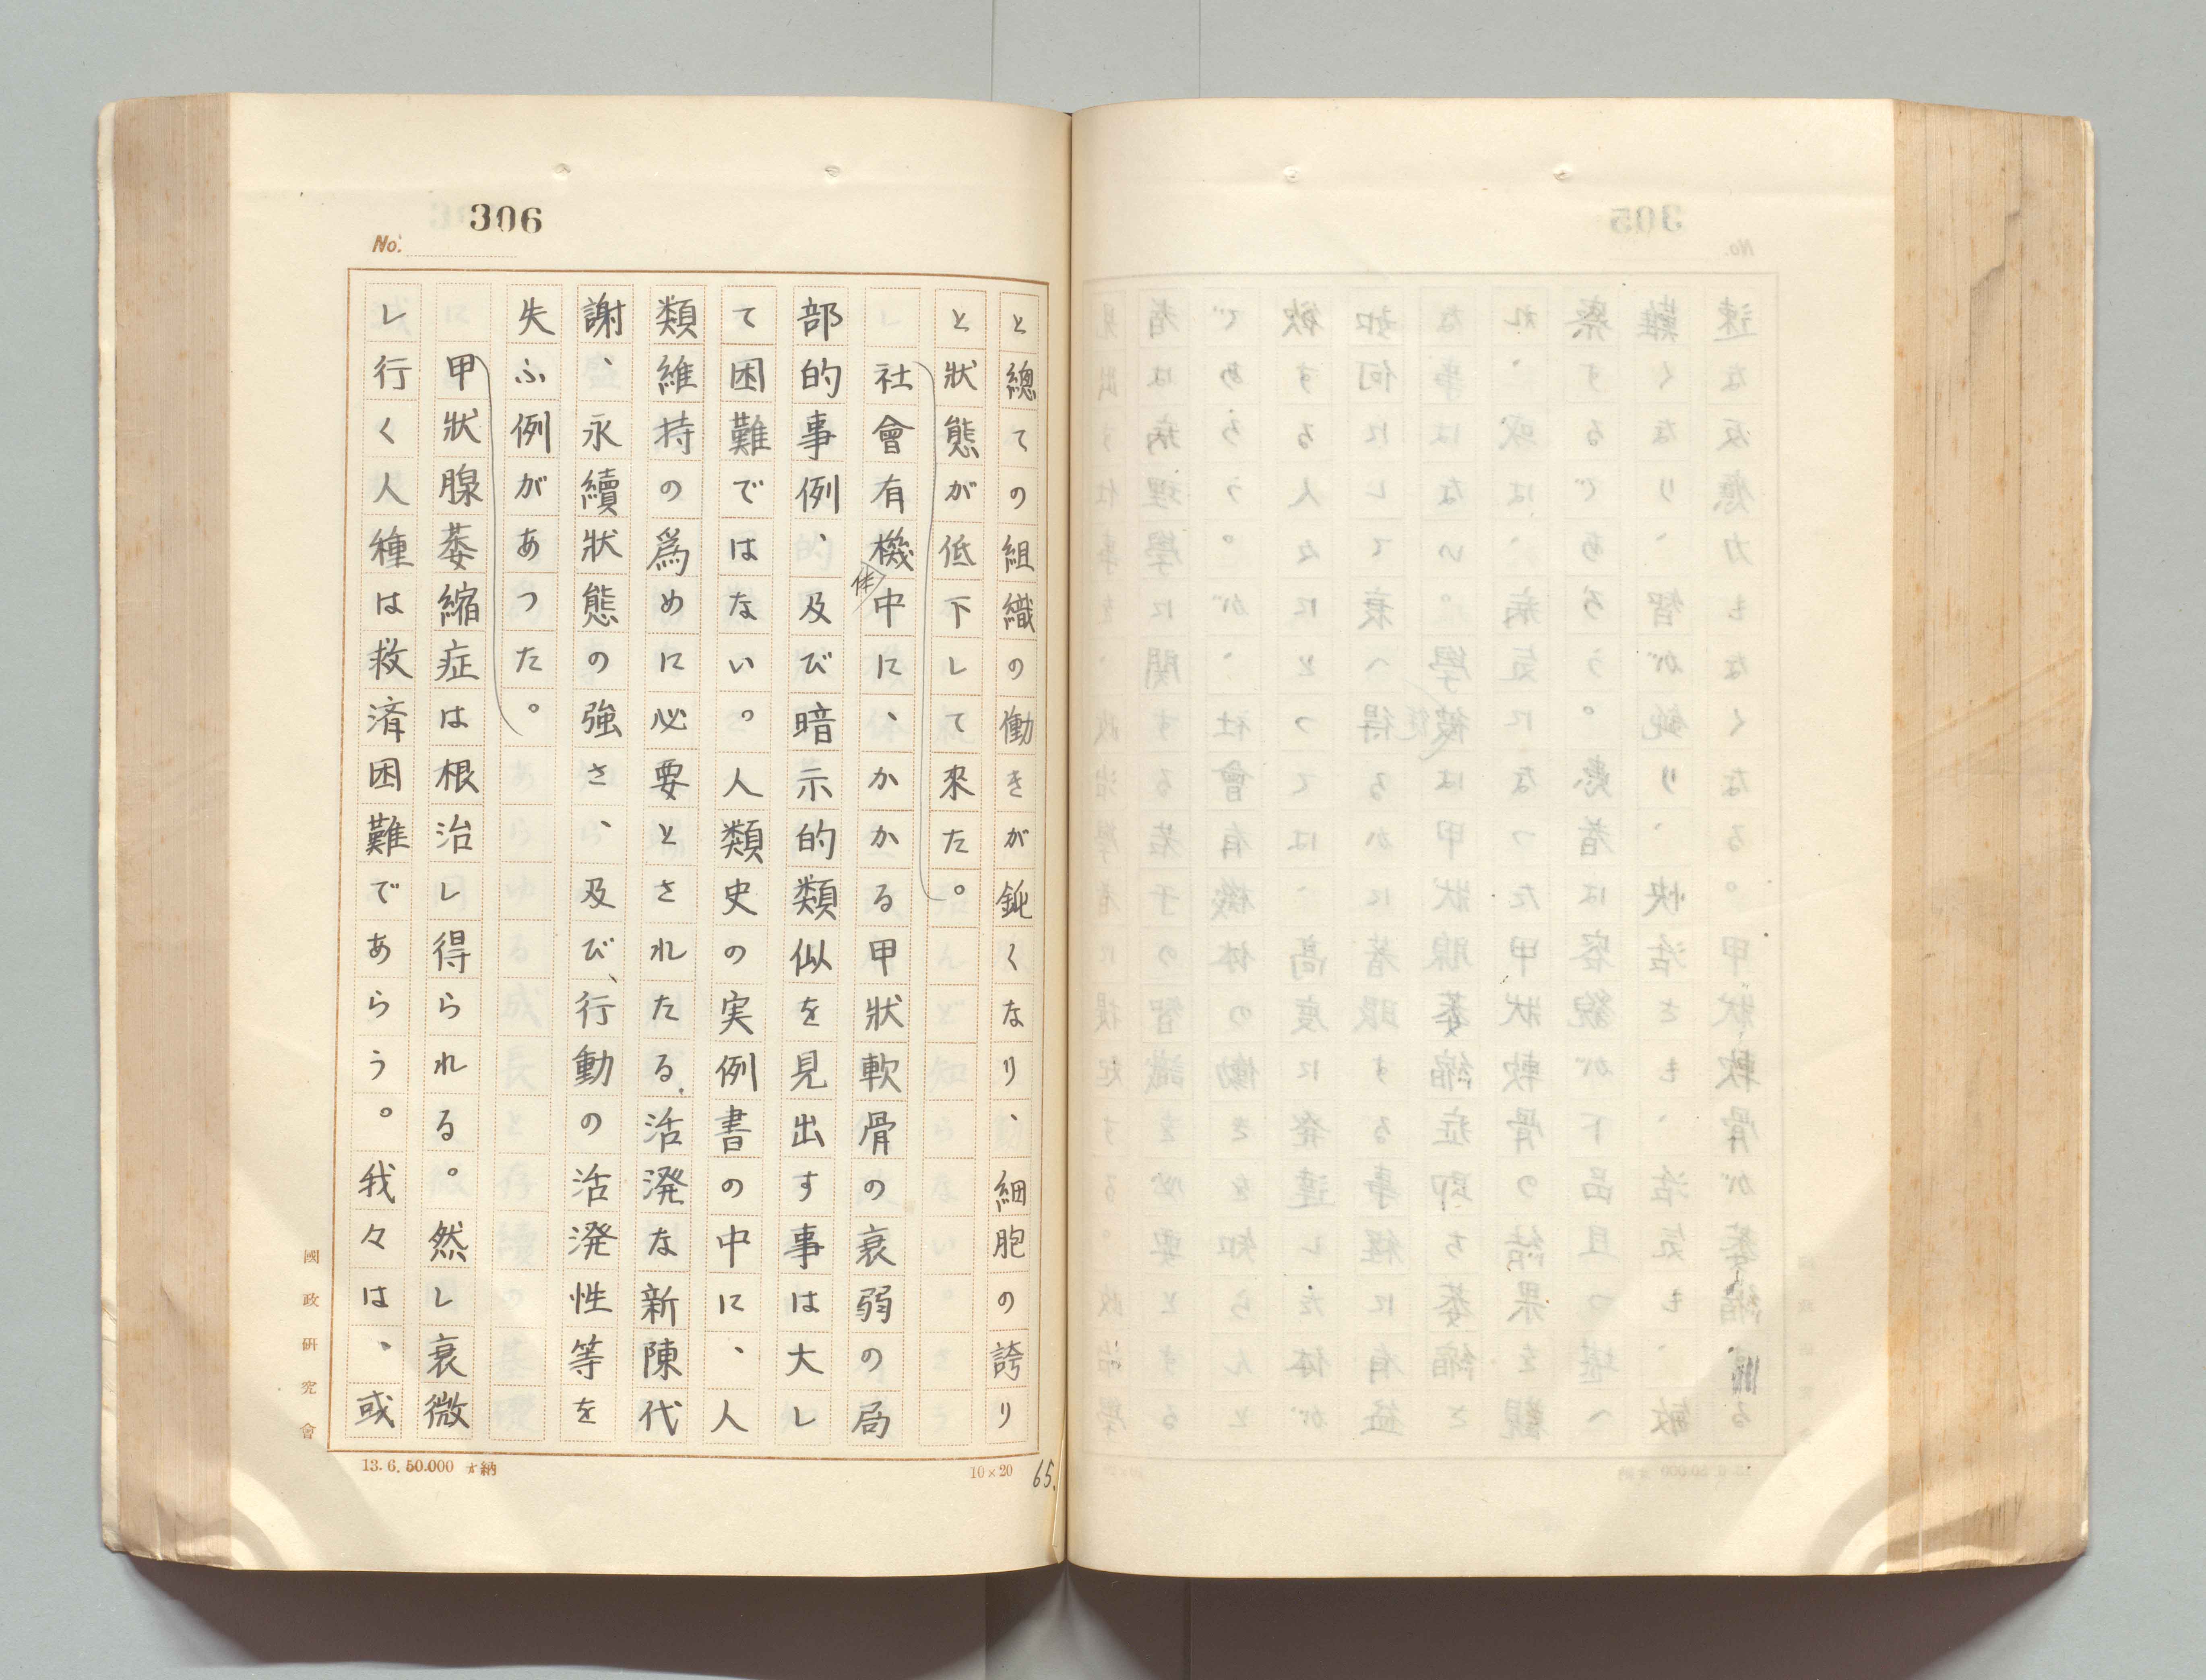 306
No.
と總ての組織の働きが鈍くなり、細胞の誇り
と狀態が低下して來た。
社會有機体中に、かかる甲狀軟骨の衰弱の局
部的事例、及び暗示的類似を見出す事は大し
て困難ではない。人類史の実例書の中に、人
類維持の爲めに必要とされたる、活潑な新陳代
謝、永續狀態の強さ、及び、行動の活潑性等を
失ふ例があつた。
甲狀腺萎縮症は根治し得られる。然し衰微
し行く人種は救済困難であらう。我々は、或
國政研究會
13. 6. 50.000 納
10×20
65.